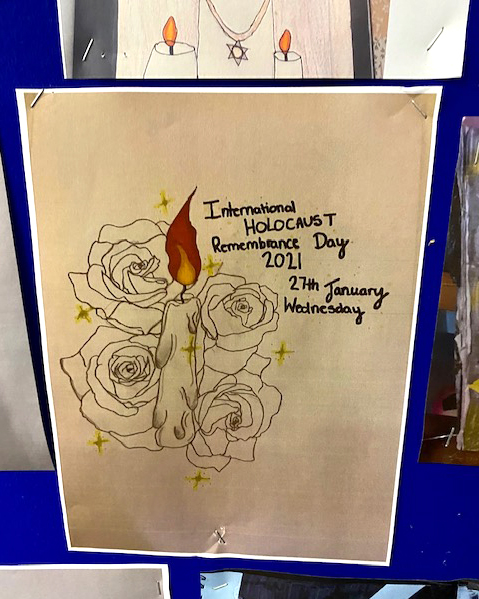 International
HOLOCAUST
Remembrance Day
2021
27th January
Wednesday